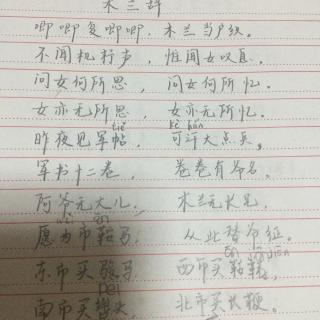 木兰辞
唧唧复唧唧，木兰当户织。
不闻机杼声，惟闻女叹息。
问女何所思，问女何所忆。
女亦无所思，女亦无所忆。
tiě kè hán
昨夜见军帖，可汗大点兵，
军书十二卷，卷卷有爷名。
阿爷无大儿，木兰无长兄，
wèi ān
愿为市鞍马，从此替爷征。
东市买骏马，西市买鞍鞯，
pèi
南市买辔头，北市买长鞭。